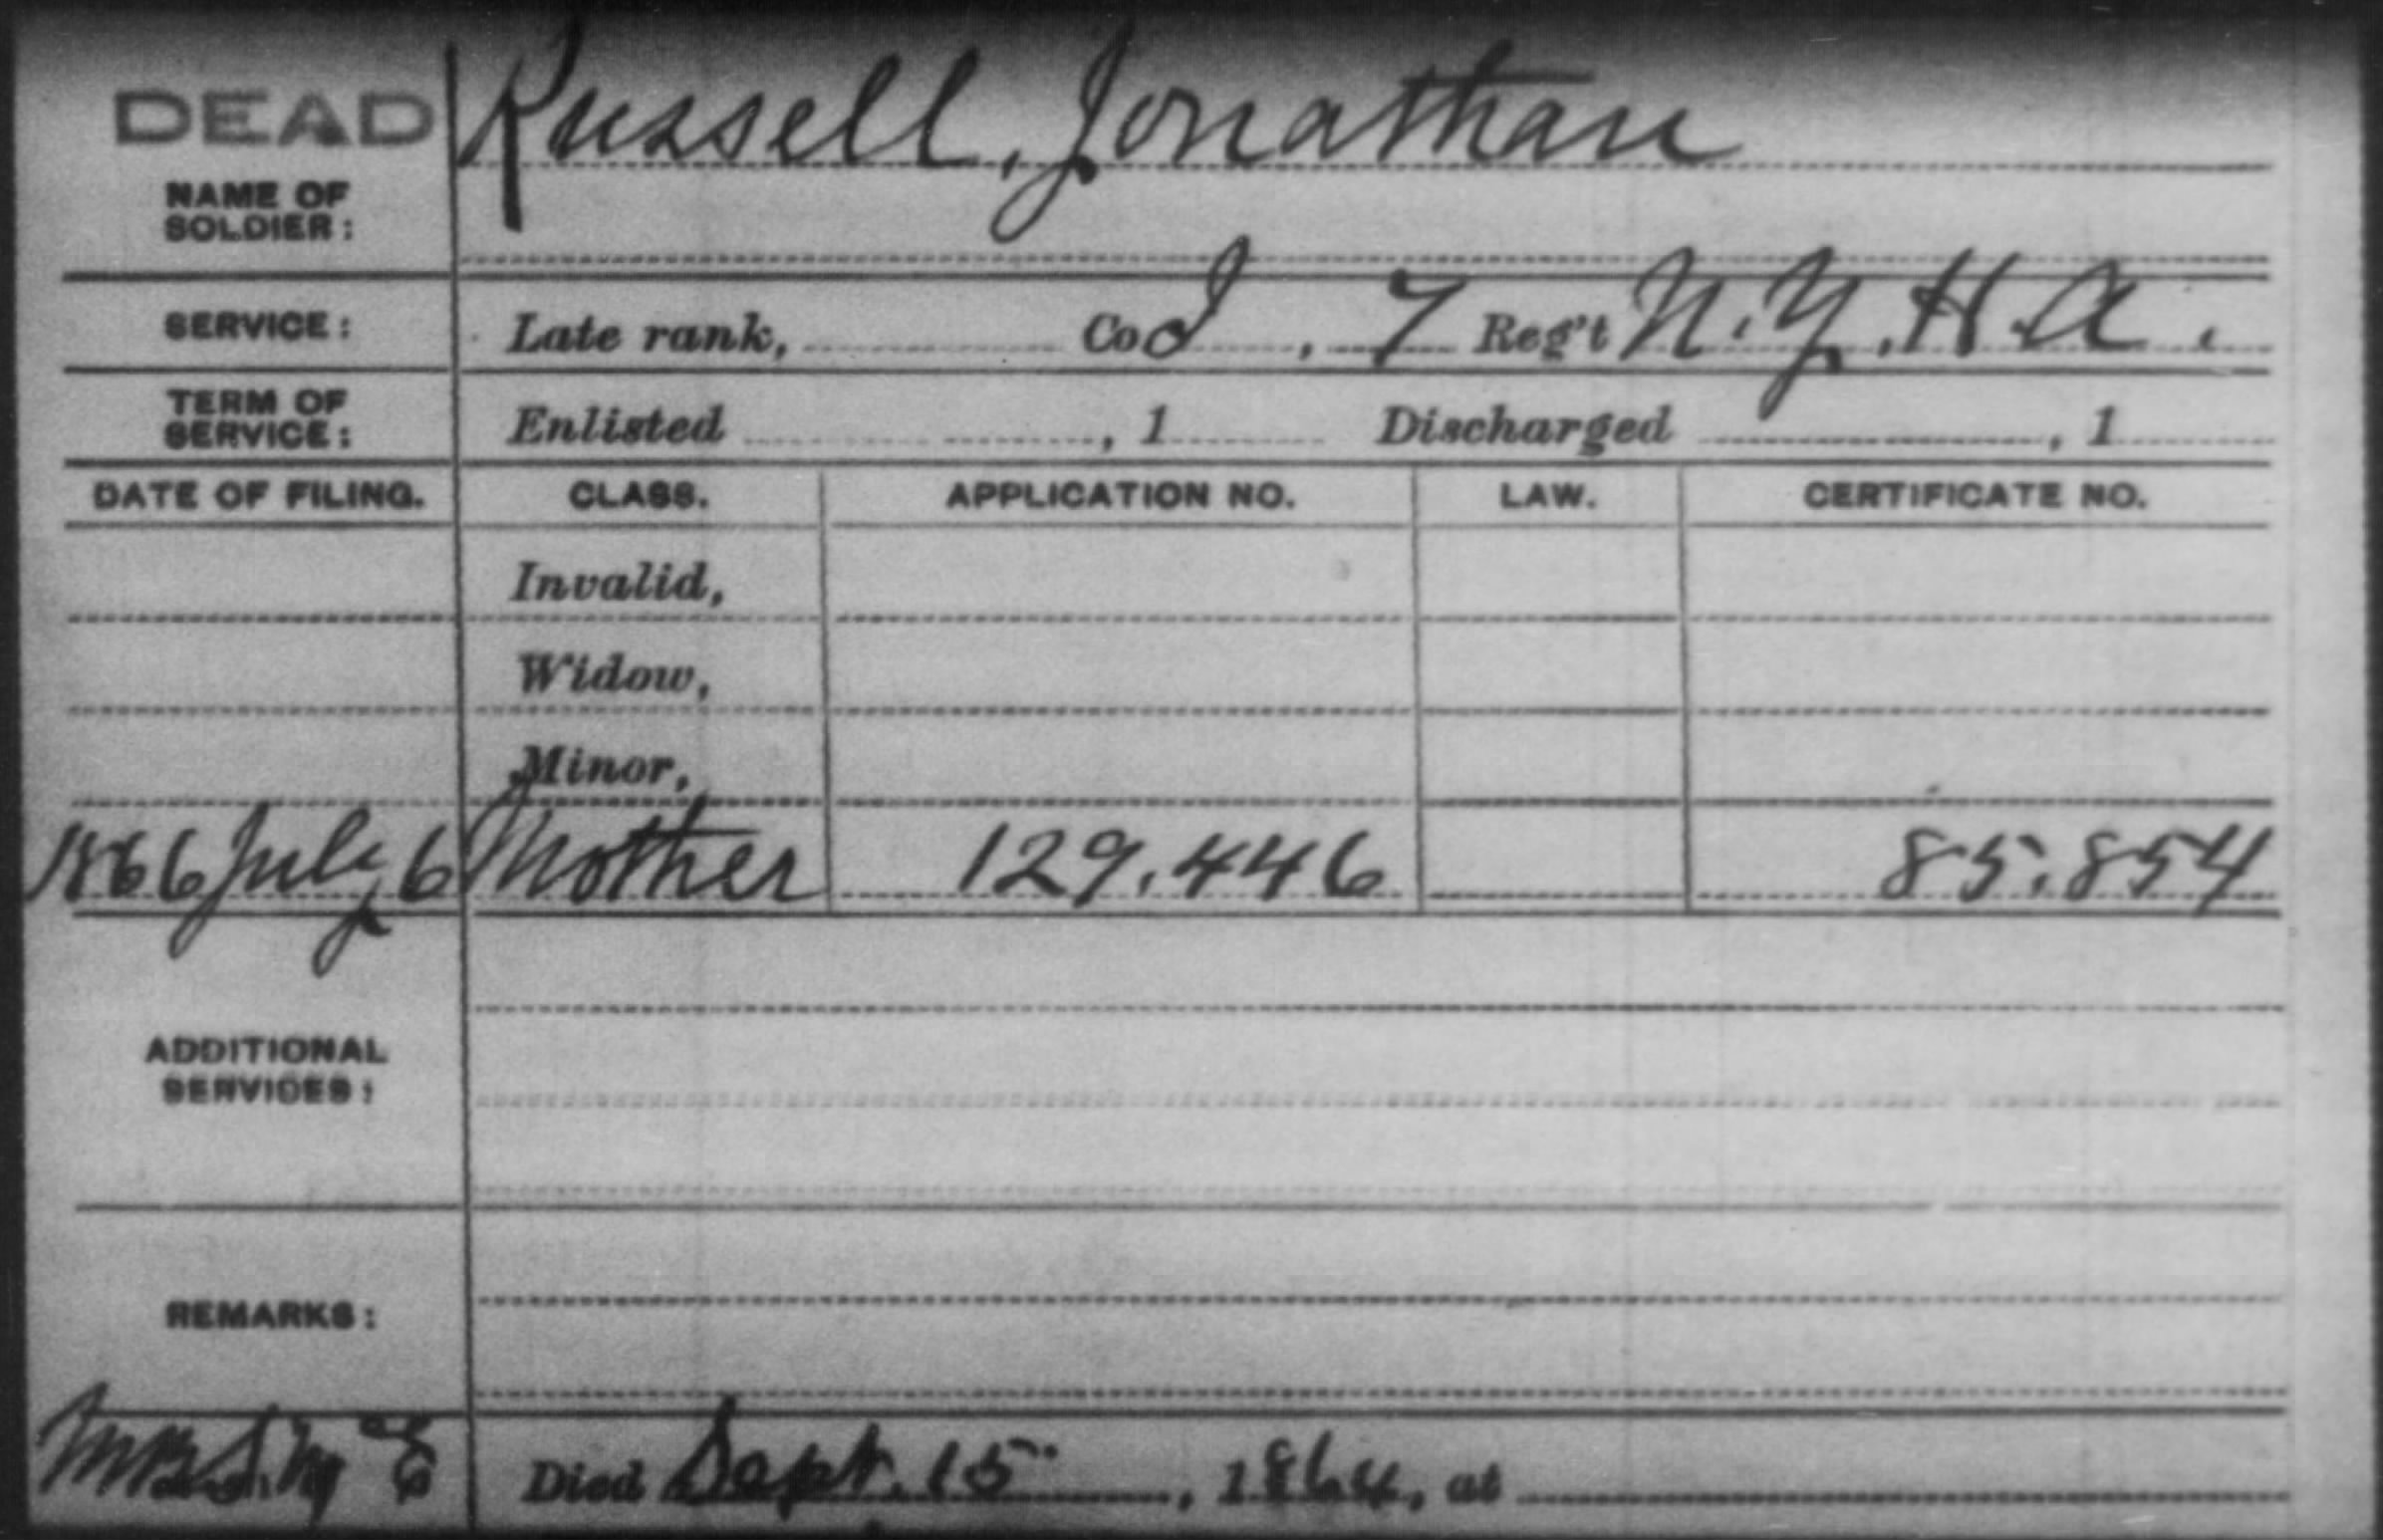 DEAD Russell, Jonathan
NAME OF
SOLDIER:
SERVICE: Late rank, Co I, 7 Reg't N.Y.H.A.
TERM OF
SERVICE: Enlisted , 1 Discharged , 1
DATE OF FILING. CLASS. APPLICATION NO. LAW. CERTIFICATE NO.
Invalid,
Widow,
Minor,
1866 July 6 Mother 129.446 85.854
ADDITIONAL
SERVICES:
REMARKS:
Died Sept. 15, 1864, at